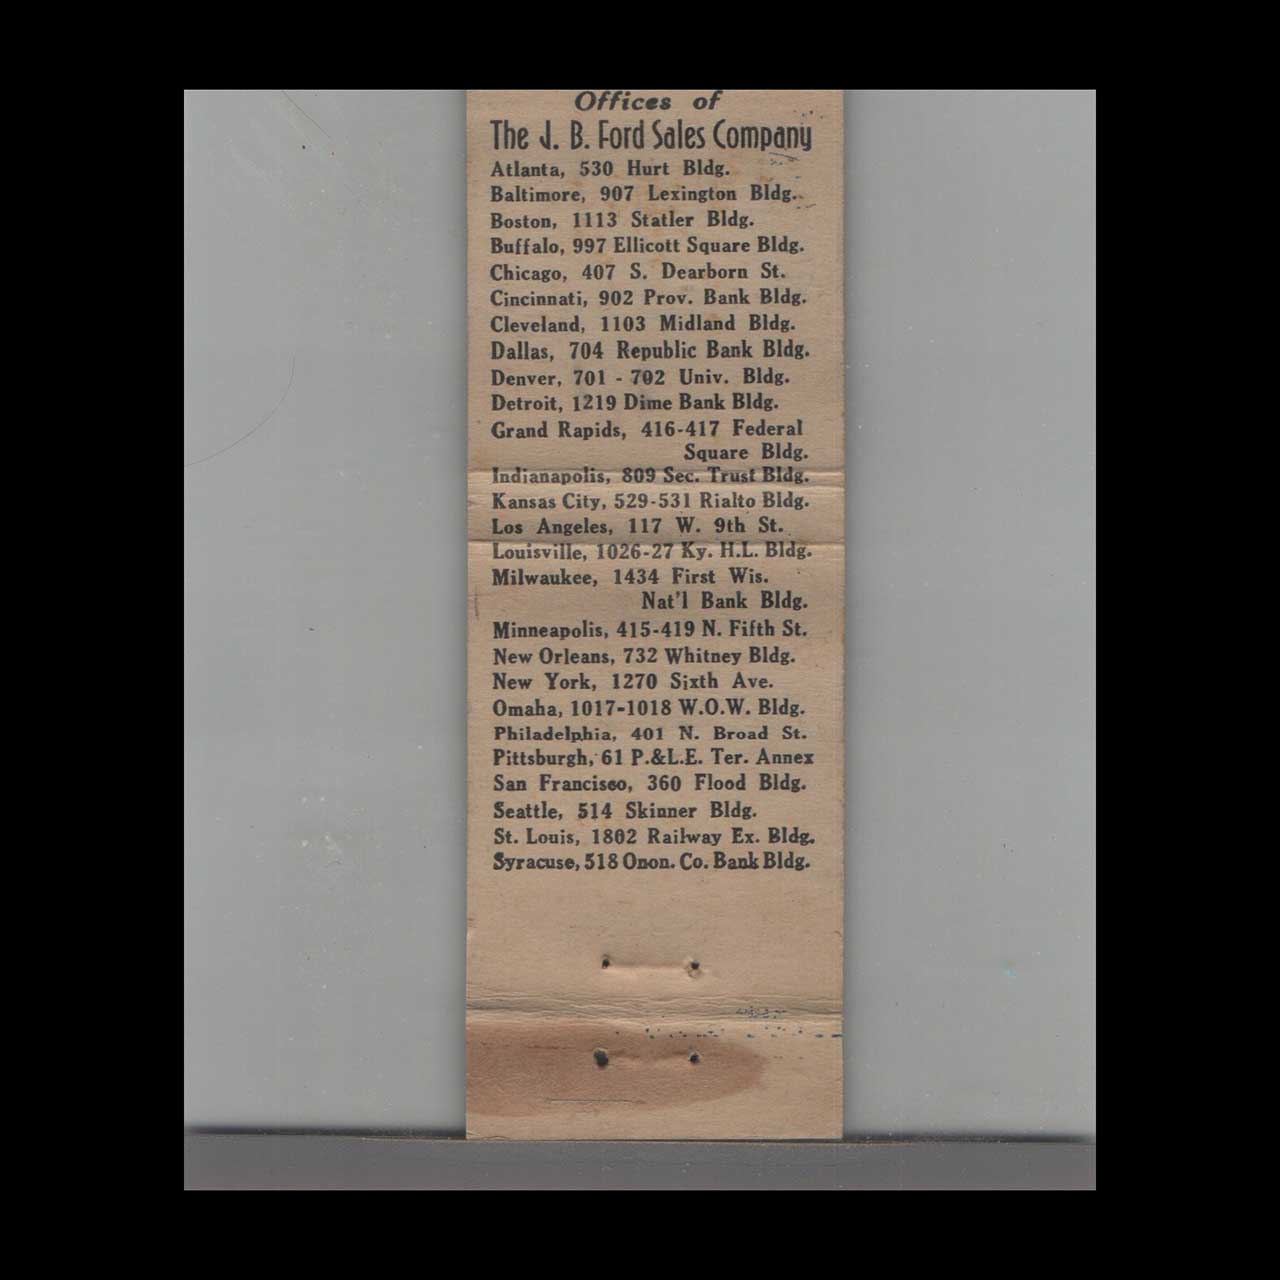 Offices of
The J. B. Ford Sales Company
Atlanta, 530 Hurt Bldg.
Baltimore, 907 Lexington Bldg.
Boston, 1113 Statler Bldg.
Buffalo, 997 Ellicott Square Bldg.
Chicago, 407 S. Dearborn St.
Cincinnati, 902 Prov. Bank Bldg.
Cleveland, 1103 Midland Bldg.
Dallas, 704 Republic Bank Bldg.
Denver, 701 - 702 Univ. Bldg.
Detroit, 1219 Dime Bank Bldg.
Grand Rapids, 416-417 Federal
Square Bldg.
Indianapolis, 809 Sec. Trust Bldg.
Kansas City, 529-531 Rialto Bldg.
Los Angeles, 117 W. 9th St.
Louisville, 1026-27 Ky. H.L. Bldg.
Milwaukee, 1434 First Wis.
Nat'l Bank Bldg.
Minneapolis, 415-419 N. Fifth St.
New Orleans, 732 Whitney Bldg.
New York, 1270 Sixth Ave.
Omaha, 1017-1018 W.O.W. Bldg.
Philadelphia, 401 N. Broad St.
Pittsburgh, 61 P.&L.E. Ter. Annex
San Francisco, 360 Flood Bldg.
Seattle, 514 Skinner Bldg.
St. Louis, 1802 Railway Ex. Bldg.
Syracuse, 518 Onon. Co. Bank Bldg.